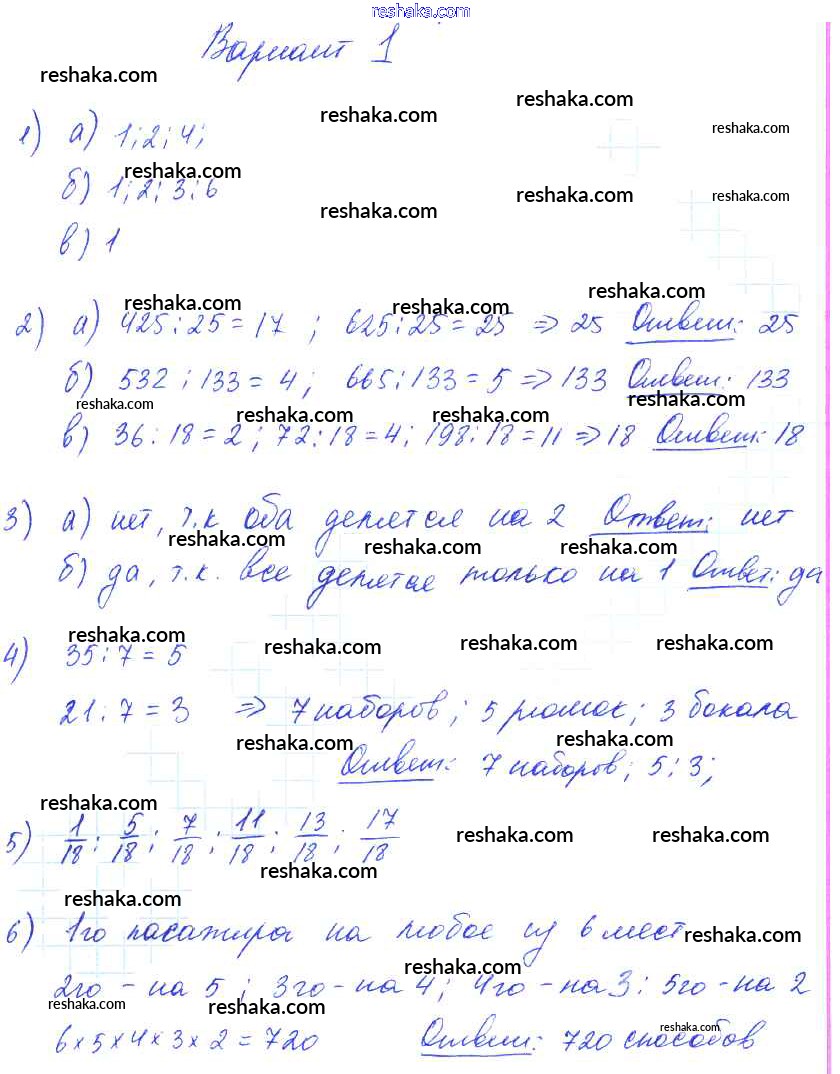 reshaka.com
Вариант 1
reshaka.com reshaka.com reshaka.com reshaka.com
1) а) 1; 2; 4;
reshaka.com reshaka.com reshaka.com reshaka.com
б) 1; 2; 3; 6
в) 1
reshaka.com reshaka.com reshaka.com
2) а) 425 : 25 = 17 ; 625 : 25 = 25 => 25 Ответ: 25
б) 532 : 133 = 4 ; 665 : 133 = 5 => 133 Ответ: 133
reshaka.com reshaka.com reshaka.com reshaka.com
в) 36 : 18 = 2 ; 72 : 18 = 4 ; 198 : 18 = 11 => 18 Ответ: 18
3) а) нет, т.к оба делятся на 2 Ответ: нет
reshaka.com reshaka.com reshaka.com
б) да, т.к. все делятся только на 1 Ответ: да
reshaka.com reshaka.com reshaka.com reshaka.com
4) 35 : 7 = 5
21 : 7 = 3 => 7 наборов ; 5 рюмок ; 3 бокала
reshaka.com reshaka.com
Ответ: 7 наборов ; 5 ; 3 ;
reshaka.com
5) 1/18 ; 5/18 ; 7/18 ; 11/18 ; 13/18 ; 17/18
reshaka.com reshaka.com reshaka.com
reshaka.com
6) 1го пасажира на любое из 6 мест
reshaka.com reshaka.com
2го - на 5 ; 3го - на 4 ; 4го - на 3 ; 5го - на 2
reshaka.com reshaka.com reshaka.com reshaka.com
6 × 5 × 4 × 3 × 2 = 720 Ответ: 720 способов